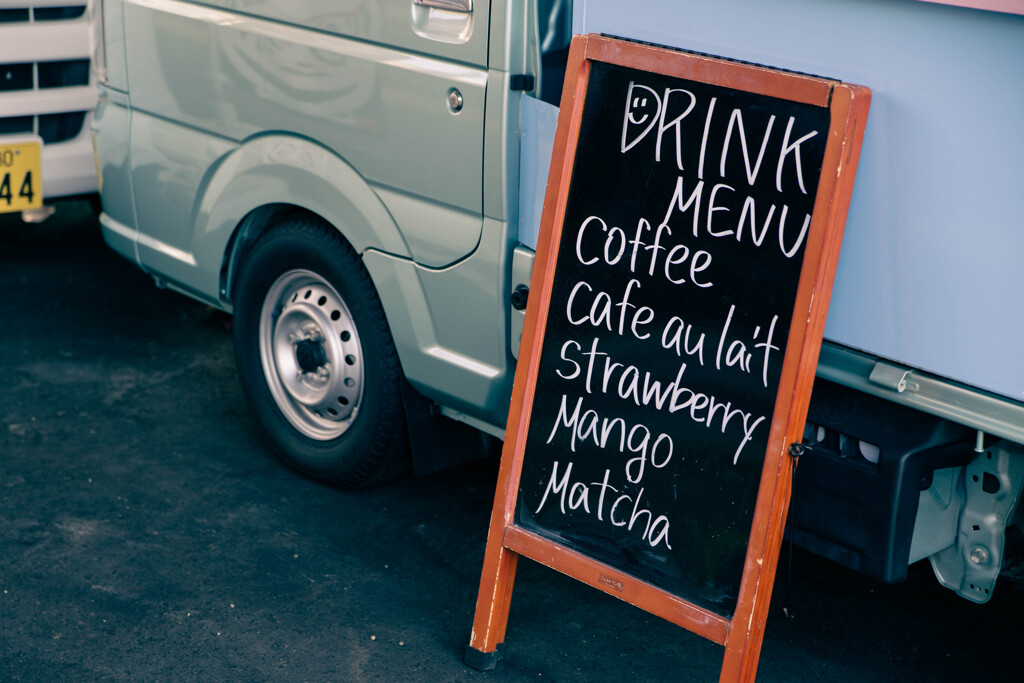 DRINK
MENU
Coffee
Cafe au lait
Strawberry
Mango
Matcha
44